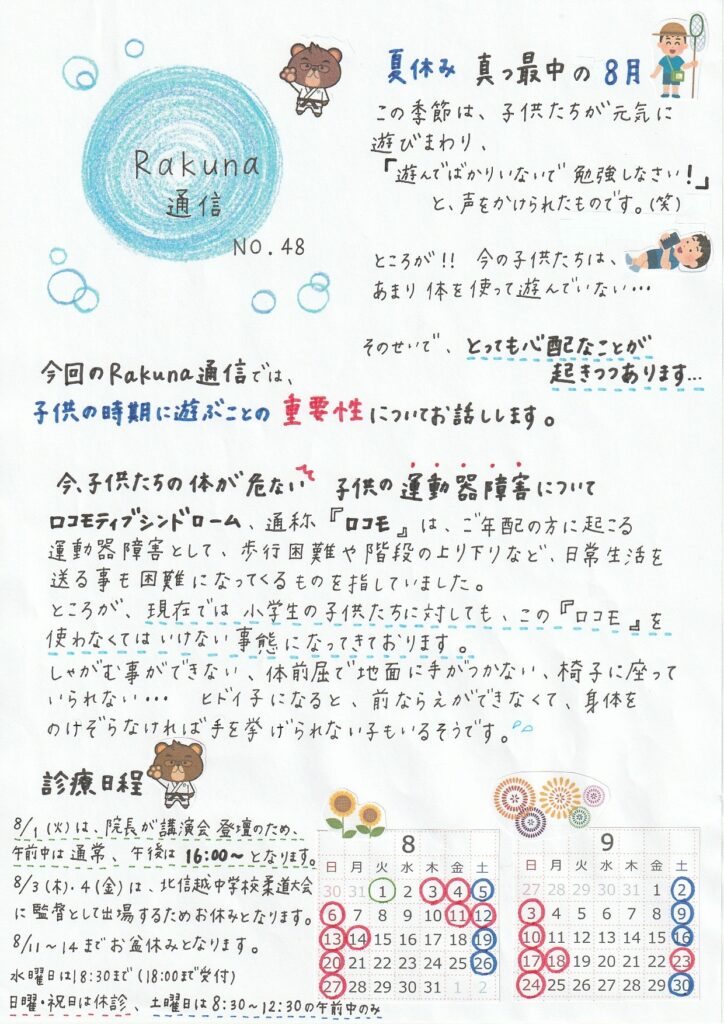 Rakuna
通信
NO.48
夏休み 真っ最中の 8月
この季節は、子供たちが元気に
遊びまわり、
「遊んでばかりいないで 勉強しなさい!」
と、声をかけられたものです。(笑)
ところが!! 今の子供たちは、
あまり体を使って遊んでいない…
そのせいで、とっても心配なことが
起きつつあります…
今回のRakuna通信では、
子供の時期に遊ぶことの 重要性についてお話しします。
今、子供たちの体が危ない 子供の運動器障害について
ロコモティブシンドローム、通称『ロコモ』は、ご年配の方に起こる
運動器障害として、歩行困難や階段の上り下りなど、日常生活を
送る事も困難になってくるものを指していました。
ところが、現在では小学生の子供たちに対しても、この『ロコモ』を
使わなくてはいけない事態になってきております。
しゃがむ事ができない、体前屈で地面に手がつかない、椅子に座って
いられない… ヒドイ子になると、前ならえができなくて、身体を
のけぞらなければ手を挙げられない子もいるそうです。
診療日程
8/1(火)は、院長が講演会登壇のため、
午前中は通常、午後は16:00~となります。
8/3(木)・4(金)は、北信越中学校柔道大会
に監督として出場するためお休みとなります。
8/11~14までお盆休みとなります。
水曜日は18:30まで(18:00まで受付)
日曜・祝日は休診、土曜日は8:30~12:30の午前中のみ
8
日 月 火 水 木 金 土
30 31 1 2 3 4 5
6 7 8 9 10 11 12
13 14 15 16 17 18 19
20 21 22 23 24 25 26
27 28 29 30 31 1 2
9
日 月 火 水 木 金 土
27 28 29 30 31 1 2
3 4 5 6 7 8 9
10 11 12 13 14 15 16
17 18 19 20 21 22 23
24 25 26 27 28 29 30